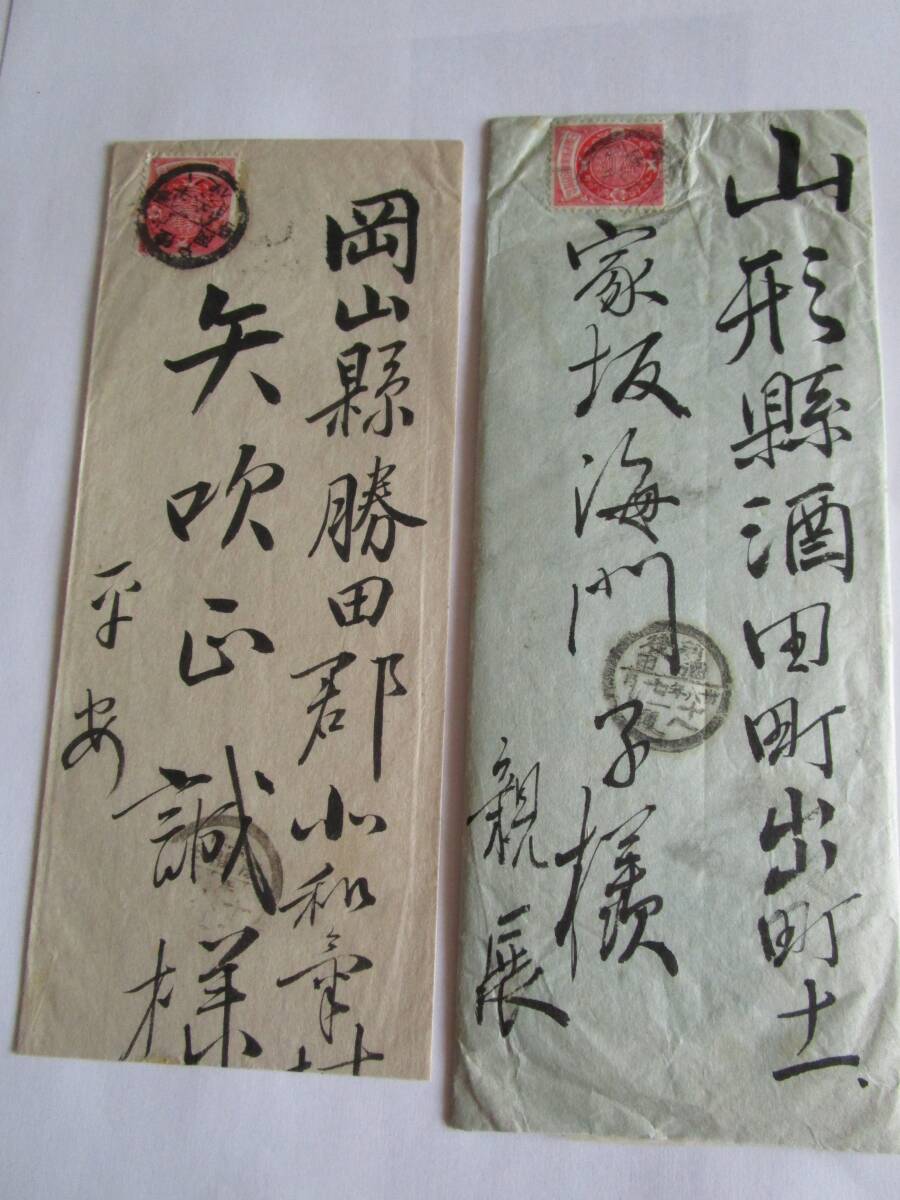 岡山縣勝田郡小和氣村
矢吹正誠様
平安
山形縣酒田町出町十一、
家坂海門子様
親展